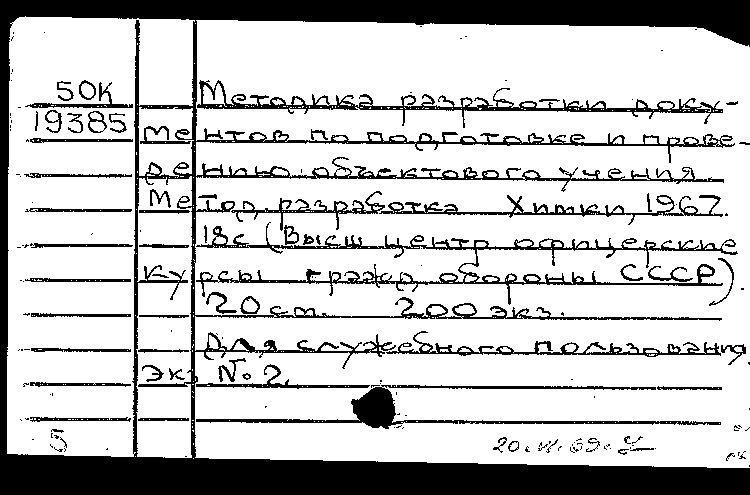 50К Методика разработки доку-
19385 ментов по подготовке и прове-
дению объектового учения.
Метод. разработка Химки, 1967.
18с (Высш центр офицерские
курсы гражд. обороны СССР).
20 см. 200 экз.
Для служебного пользования.
экз №2.
5 20.VI.69.